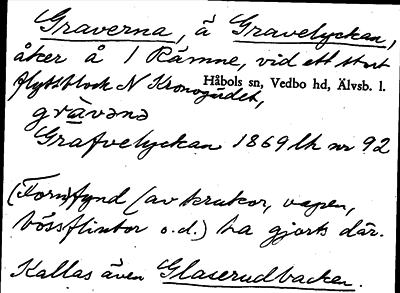 Graverna, å Gravelyckan,
åker å 1 Rämne, vid ett stort
flyttblock N Kronogärdet,
Håbols sn, Vedbo hd, Älvsb. l.
grà̀vǝnǝ
Grafvelyckan 1869 lh nr 92
(Forn)fynd (av krukor, vapen,
bössflintor o.d.) ha gjorts där.
Kallas även Glaserudbacken.